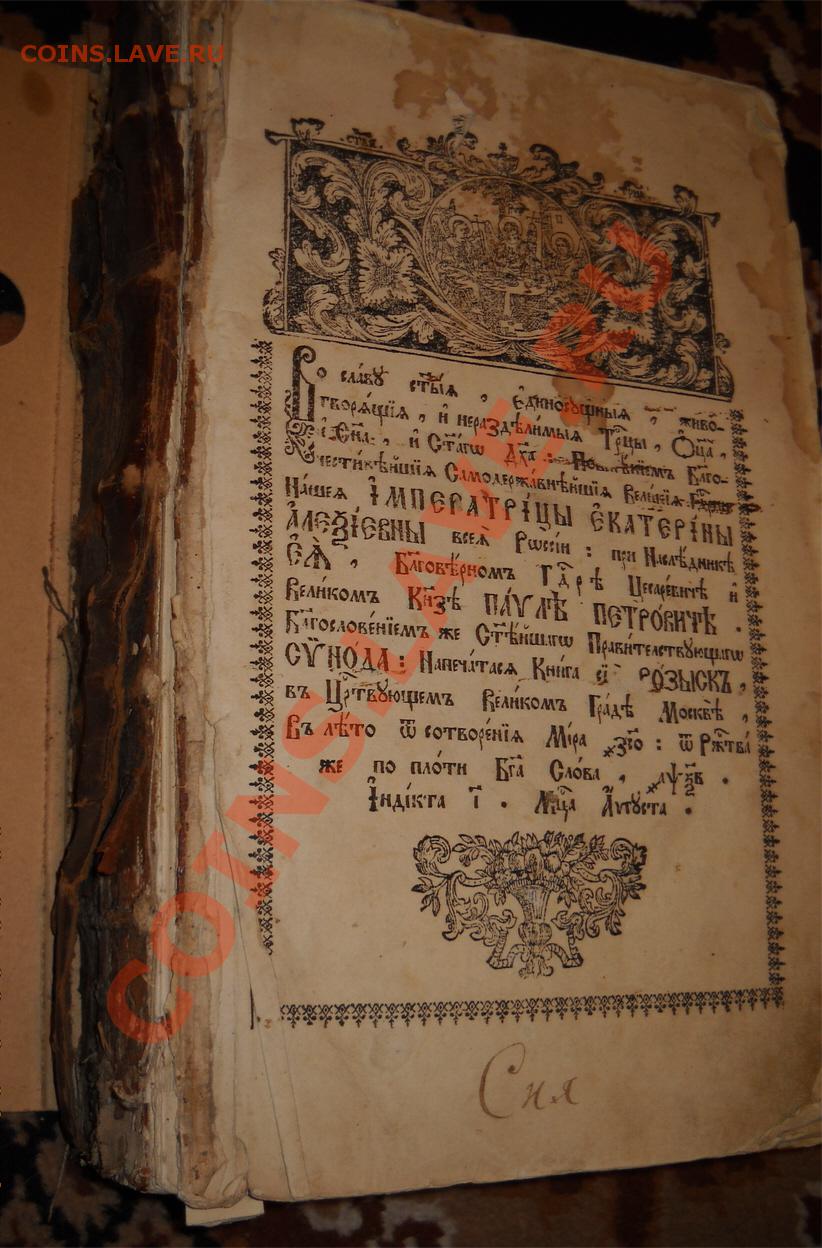 COINS.LAVE.RU
стаѧ
Во славу ст҃ыѧ, є҆диносу́щныѧ, живо-
творѧ́щїѧ, и҆ нераздѣли́мыѧ Трⷪ҇цы, Ѻ҆ц҃а̀,
и҆ Сн҃а, и҆ Ст҃а́гѡ Дх҃а: Повелѣ́нїемъ Бл҃го-
чести́вѣйшїѧ Самодержа́внѣйшїѧ Вели́кїѧ
На́шеѧ І҆МПЕРАТРИ́ЦЫ Є҆КАТЕРІ́НЫ
А҆ЛЕѮІ́ЕВНЫ всеѧ̀ Рѡссі́и: при Наслѣ́дникѣ
Є҆Ѧ̀, Бл҃говѣ́рномъ Гдⷭ҇рѣ Цесаре́вичѣ и҆
Вели́комъ Кнѧ́зѣ ПА́ѴЛѢ ПЕТРО́ВИЧѢ.
Бл҃гослове́нїемъ же Ст҃ѣ́йшагѡ Прави́телствующагѡ
СѴНО́ДА: Напеча́тасѧ Кни́га РО́ЗЫСКЪ,
въ Црⷭ҇твующемъ Вели́комъ Гра́дѣ Москвѣ̀,
Въ лѣ́то ѿ сотворе́нїѧ Мі́ра ҂зс҃о: ѿ Ржⷭ҇тва̀
же по пло́ти Бг҃а Сло́ва, ҂аѱ҃ѯв.
І҆нді́кта і҃. Мцⷭ҇а А҆́ѵгуста.
Сия
COINS.LAVE.RU